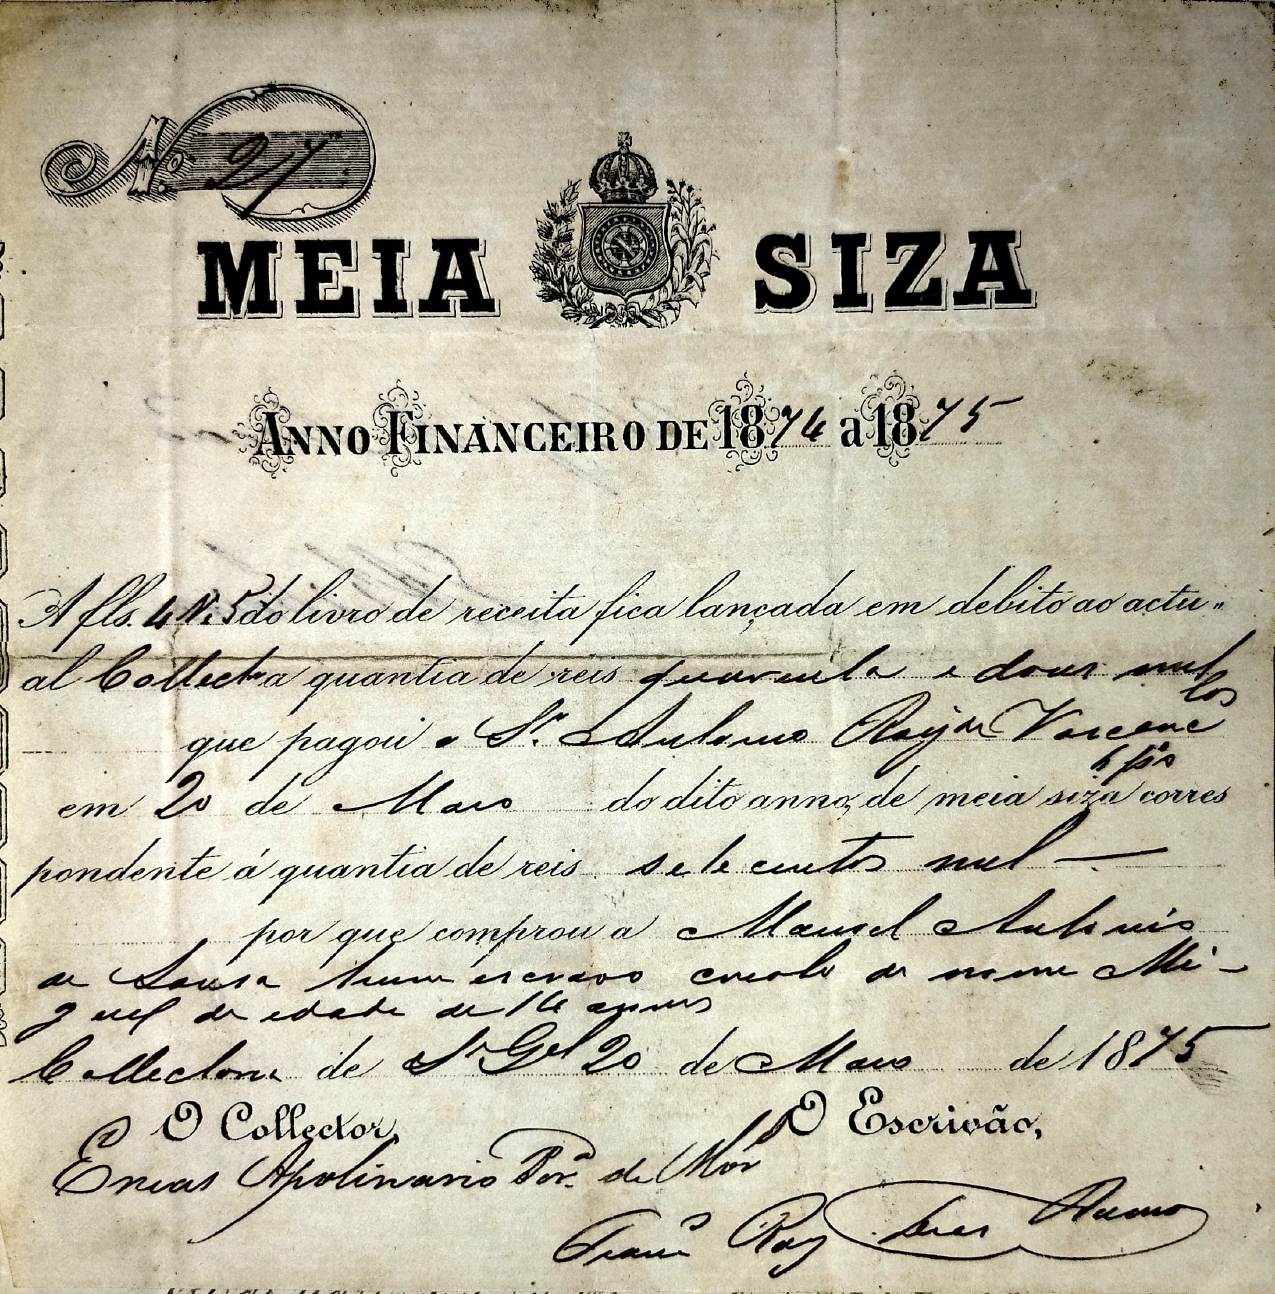 N. 27
MEIA SIZA
ANNO FINANCEIRO DE 1874 a 1875
A fls. 4 N. 5 do livro de receita fica lançada em debito ao actu-
al Collector a quantia de reis quarenta e dous mil
que pagou o Sr. Antonio Roiz de Vasconcellos
em 20 de Maio do dito anno, de meia siza corres
pondente á quantia de reis sete centos mil
por que comprou a Manoel Antonio
de Sousa hum escravo creolo de nome Mi-
guel de edade de 14 annos
Collectoria de S. Gel 20 de Maio de 1875
O Collector, O Escrivão,
Eneas Apolinario Por.ª de Mór
Franco Roiz